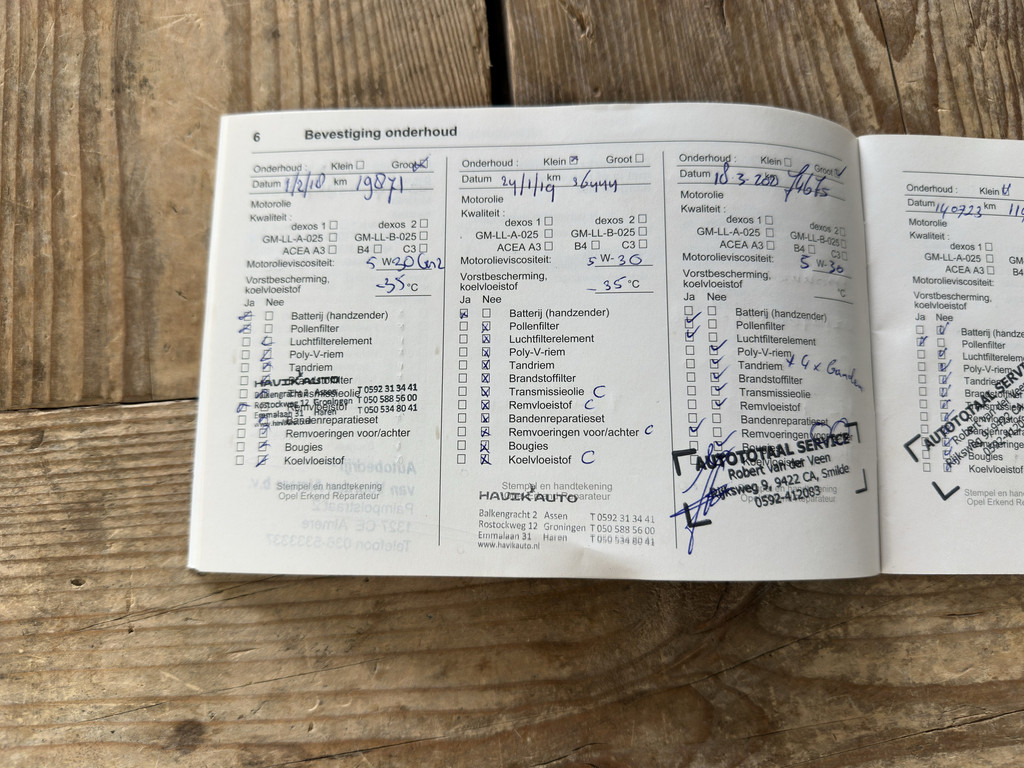 6 Bevestiging onderhoud
Onderhoud : Klein Groot
Datum 1/2/18 km 19871
Motorolie
Kwaliteit :
dexos 1 dexos 2
GM-LL-A-025 GM-LL-B-025
ACEA A3 B4 C3
Motorolieviscositeit: 5 W-30
Vorstbescherming,
koelvloeistof -35 °C
Ja Nee
Batterij (handzender)
Pollenfilter
Luchtfilterelement
Poly-V-riem
Tandriem
HAVIKAUTO
Balkengracht 2 Assen T 0592 31 34 41
Rostockweg 12 Groningen T 050 588 56 00
Emmalaan 31 Haren T 050 534 80 41
Bandenreparatieset
Remvoeringen voor/achter
Bougies
Koelvloeistof
Stempel en handtekening
Opel Erkend Reparateur
Onderhoud : Klein Groot
Datum 24/1/19 km 36444
Motorolie
Kwaliteit :
dexos 1 dexos 2
GM-LL-A-025 GM-LL-B-025
ACEA A3 B4 C3
Motorolieviscositeit: 5 W-30
Vorstbescherming,
koelvloeistof -35 °C
Ja Nee
Batterij (handzender)
Pollenfilter
Luchtfilterelement
Poly-V-riem
Tandriem
Brandstoffilter
Transmissieolie C
Remvloeistof C
Bandenreparatieset
Remvoeringen voor/achter C
Bougies
Koelvloeistof C
Stempel en handtekening
HAVIKAUTO
Balkengracht 2 Assen T 0592 31 34 41
Rostockweg 12 Groningen T 050 588 56 00
Emmalaan 31 Haren T 050 534 80 41
www.havikauto.nl
Onderhoud : Klein Groot
Datum km
Motorolie
Kwaliteit :
dexos 1 dexos 2
GM-LL-A-025 GM-LL-B-025
ACEA A3 B4 C3
Motorolieviscositeit: 5 W-30
Vorstbescherming,
koelvloeistof °C
Ja Nee
Batterij (handzender)
Pollenfilter
Luchtfilterelement
Poly-V-riem
Tandriem
Brandstoffilter
Transmissieolie
Remvloeistof
Bandenreparatieset
Remvoeringen
AUTOTOTAAL SERVICE
Robert van der Veen
Rijksweg 9, 9422 CA, Smilde
0592-412083
Opel Erkend Reparateur
Onderhoud : Klein
Datum 140723 km
Motorolie
Kwaliteit :
dexos 1
GM-LL-A-025
ACEA A3
Motorolieviscositeit:
Vorstbescherming,
koelvloeistof
Ja Nee
Batterij
Pollenfilter
Poly-V-riem
Tandriem
AUTOTOTAAL
Bougies
Koelvloeistof
Stempel en
Opel Erkend